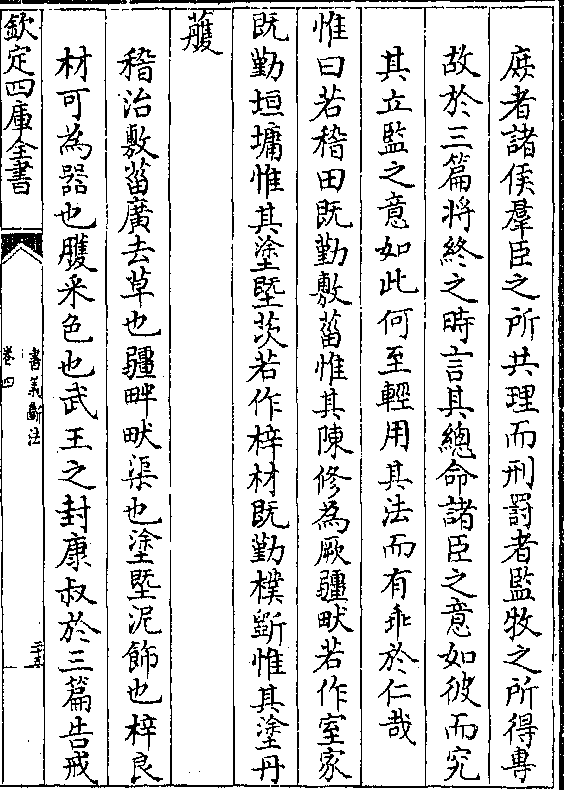 庶者諸侯羣臣之所共理而刑罰者監牧之所得専
故於三篇将終之時言其總命諸臣之意如彼而究
其立監之意如此何至輕用其法而有乖於仁哉
惟曰若稽田既勤敷菑惟其陳修為厥疆畎若作室家
既勤垣墉惟其塗塈茨若作梓材既勤樸斲惟其塗丹
雘
稽治敷菑廣去草也疆畔畎渠也塗塈泥飾也梓良
材可為器也雘采色也武王之封康叔於三篇告戒
欽定四庫全書
書義斷法
卷四
三五